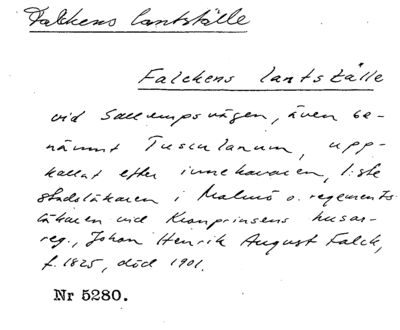 Falckens lantställe
Falckens lantställe
vid Sallerupsvägen, även be-
nämnt Tusculanum, upp-
kallat efter innehavaren, 1:ste
stadsläkaren i Malmö o. regements
läkaren vid Kronprinsens husar-
reg., Johan Henrik August Falck,
f. 1825, död 1901.
Nr 5280.